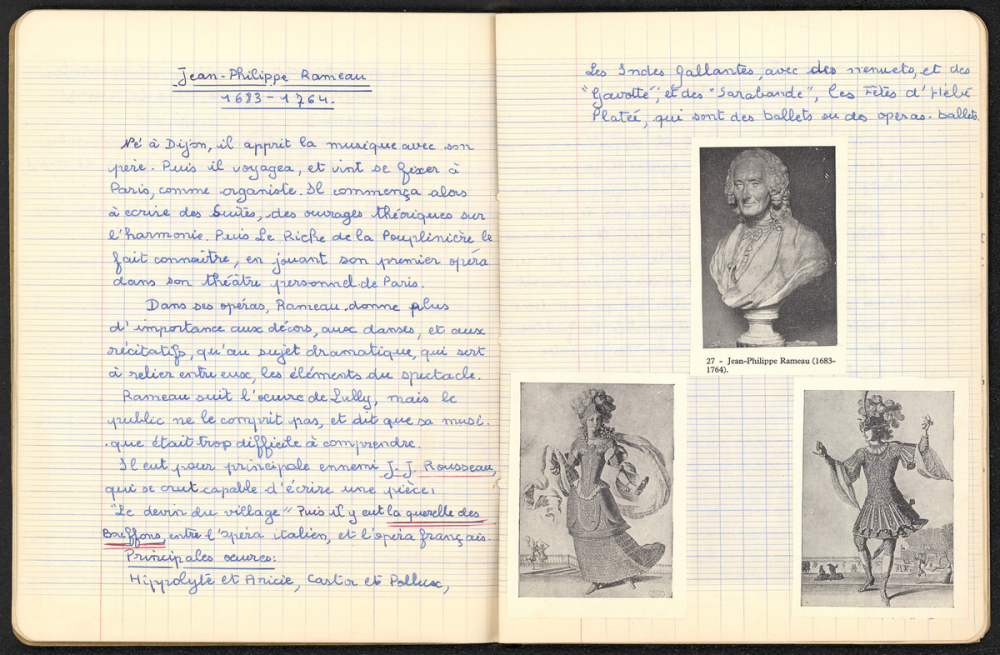 Jean-Philippe Rameau
1683-1764.
Né à Dijon, il apprit la musique avec son
père. Puis il voyagea, et vint se fixer à
Paris, comme organiste. Il commença alors
à ecrire des Suites, des ouvrages théoriques sur
l'harmonie. Puis Le Riche de la Pouplinière le
fait connaître, en jouant son premier opéra
dans son théâtre personnel de Paris.
Dans ses opéras, Rameau donne plus
d'importance aux décors, aux danses, et aux
récitatifs, qu'au sujet dramatique, qui sert
à relier entre eux, les éléments du spectacle.
Rameau suit l'œuvre de Lully, mais le
public ne le comprit pas, et dit que sa musi-
que était trop difficile à comprendre.
Il eut pour principale ennemi J.J. Rousseau,
qui se crut capable d'écrire une pièce:
"Le devin du village" Puis il y eut la querelle des
Bouffons, entre l'opéra italien, et l'opéra français.
Principales œuvres:
Hippolyte et Aricie, Castor et Pollux,
Les Indes Gallantes, avec des menuets, et des
"Gavotte", et des "Sarabande", les Fêtes d'Hébé
Platée, qui sont des ballets ou des operas-ballets
27 - Jean-Philippe Rameau (1683-
1764).